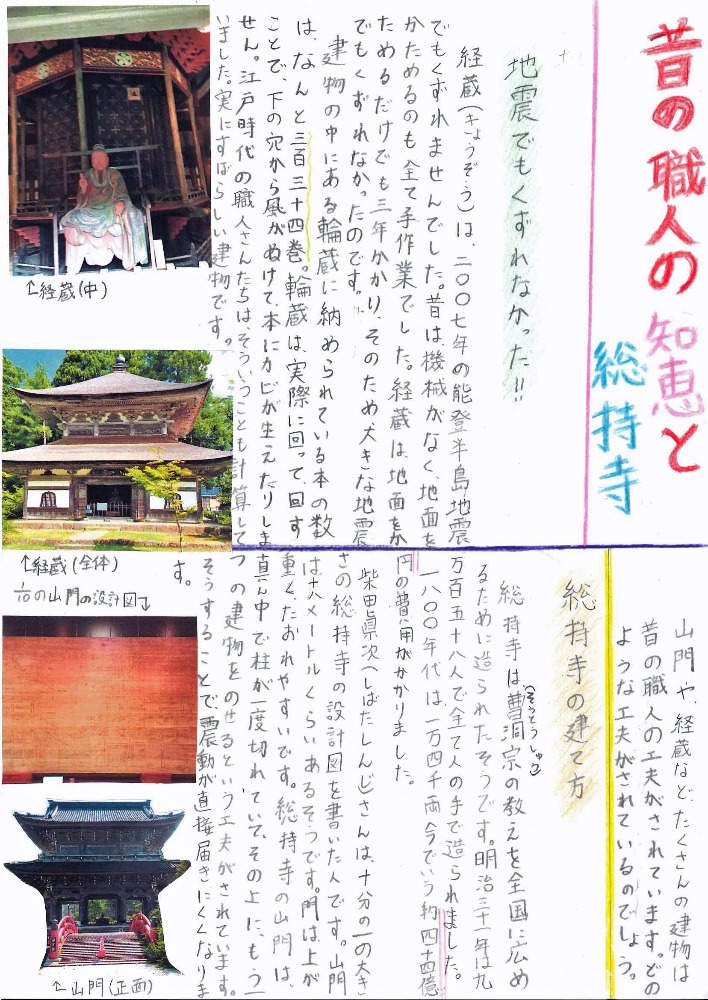 昔の職人の知恵と
総持寺
地震でもくずれなかった!!
経蔵(きょうぞう)は、二〇〇七年の能登半島地震
でもくずれませんでした。昔は機械がなく、地面を
かためるのも全て手作業でした。経蔵は、地面をか
ためるだけでも三年かかり、そのため大きな地震
でもくずれなかったのです。
建物の中にある輪蔵に納められている本の数
は、なんと三百三十四巻。輪蔵は、実際に回って、回す
ことで、下の穴から風がぬけて、本にカビが生えたりしま
せん。江戸時代の職人さんたちは、そういうことも計算して
いました。実にすばらしい建物です。
↑経蔵(中)
↑経蔵(全体)
山門や、経蔵など、たくさんの建物は
昔の職人の工夫がされています。どの
ような工夫がされているのでしょう。
総持寺の建て方
総持寺は曹洞宗(そうとうしゅう)の教えを全国に広め
るために造られたそうです。明治三十一年は九
万百五十八人で全て人の手で造られました。
一八〇〇年代は、一万四千両、今でいう約四十四億
円の費用がかかりました。
柴田眞次(しばたしんじ)さんは、十分の一の大き
さの総持寺の設計図を書いた人です。山門
は、十八メートルくらいあるそうです。門は上が
重く、たおれやすいです。総持寺の山門は、
真ん中で柱が一度切れていて、その上に、もう一
つの建物をのせるという工夫がされています。
そうすることで、震動が直接届きにくくなりま
す。
1/10の山門の設計図↓
↑山門(正面)